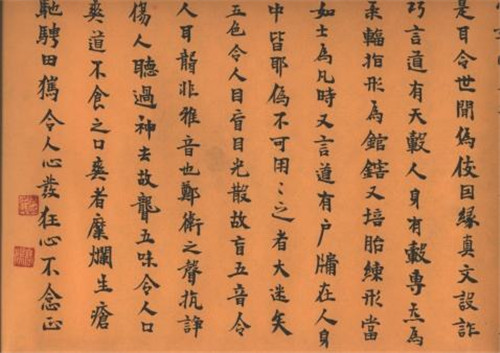 是耳令世間偽伎因緣真文設詐
巧言道有天轂人身有轂專炁為
柔輻指形為錧鎋又培胎練形當
如士為凡時又言道有户牖在人身
中皆耶偽不可用〻之者大迷矣
五色令人目盲目光散故盲五音令
人耳聾非雅音也鄭衛之聲抗諍
傷人聽過神去故聾五味令人口
爽道不食之口爽者糜爛生瘡
馳騁田獵令人心發狂心不念正